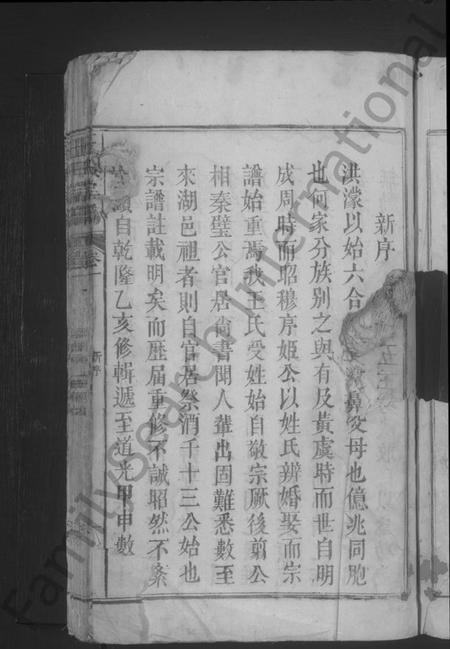 新序
洪濛以始六合 鼻父母也億兆同胞
也何家分族別之與有及黃虞時而世自明
成周時而昭穆序姬公以姓氏辨婚娶而宗
譜始重焉我王氏受姓始自敬宗厥後翦公
相秦璧公官居尚書聞人輩出固難悉數至
來湖邑祖者則自官居祭酒千十三公始也
宗譜註載明矣而歷届重修不誠昭然不紊
自乾隆乙亥修輯遞至道光甲申數
新序
Familysearch International